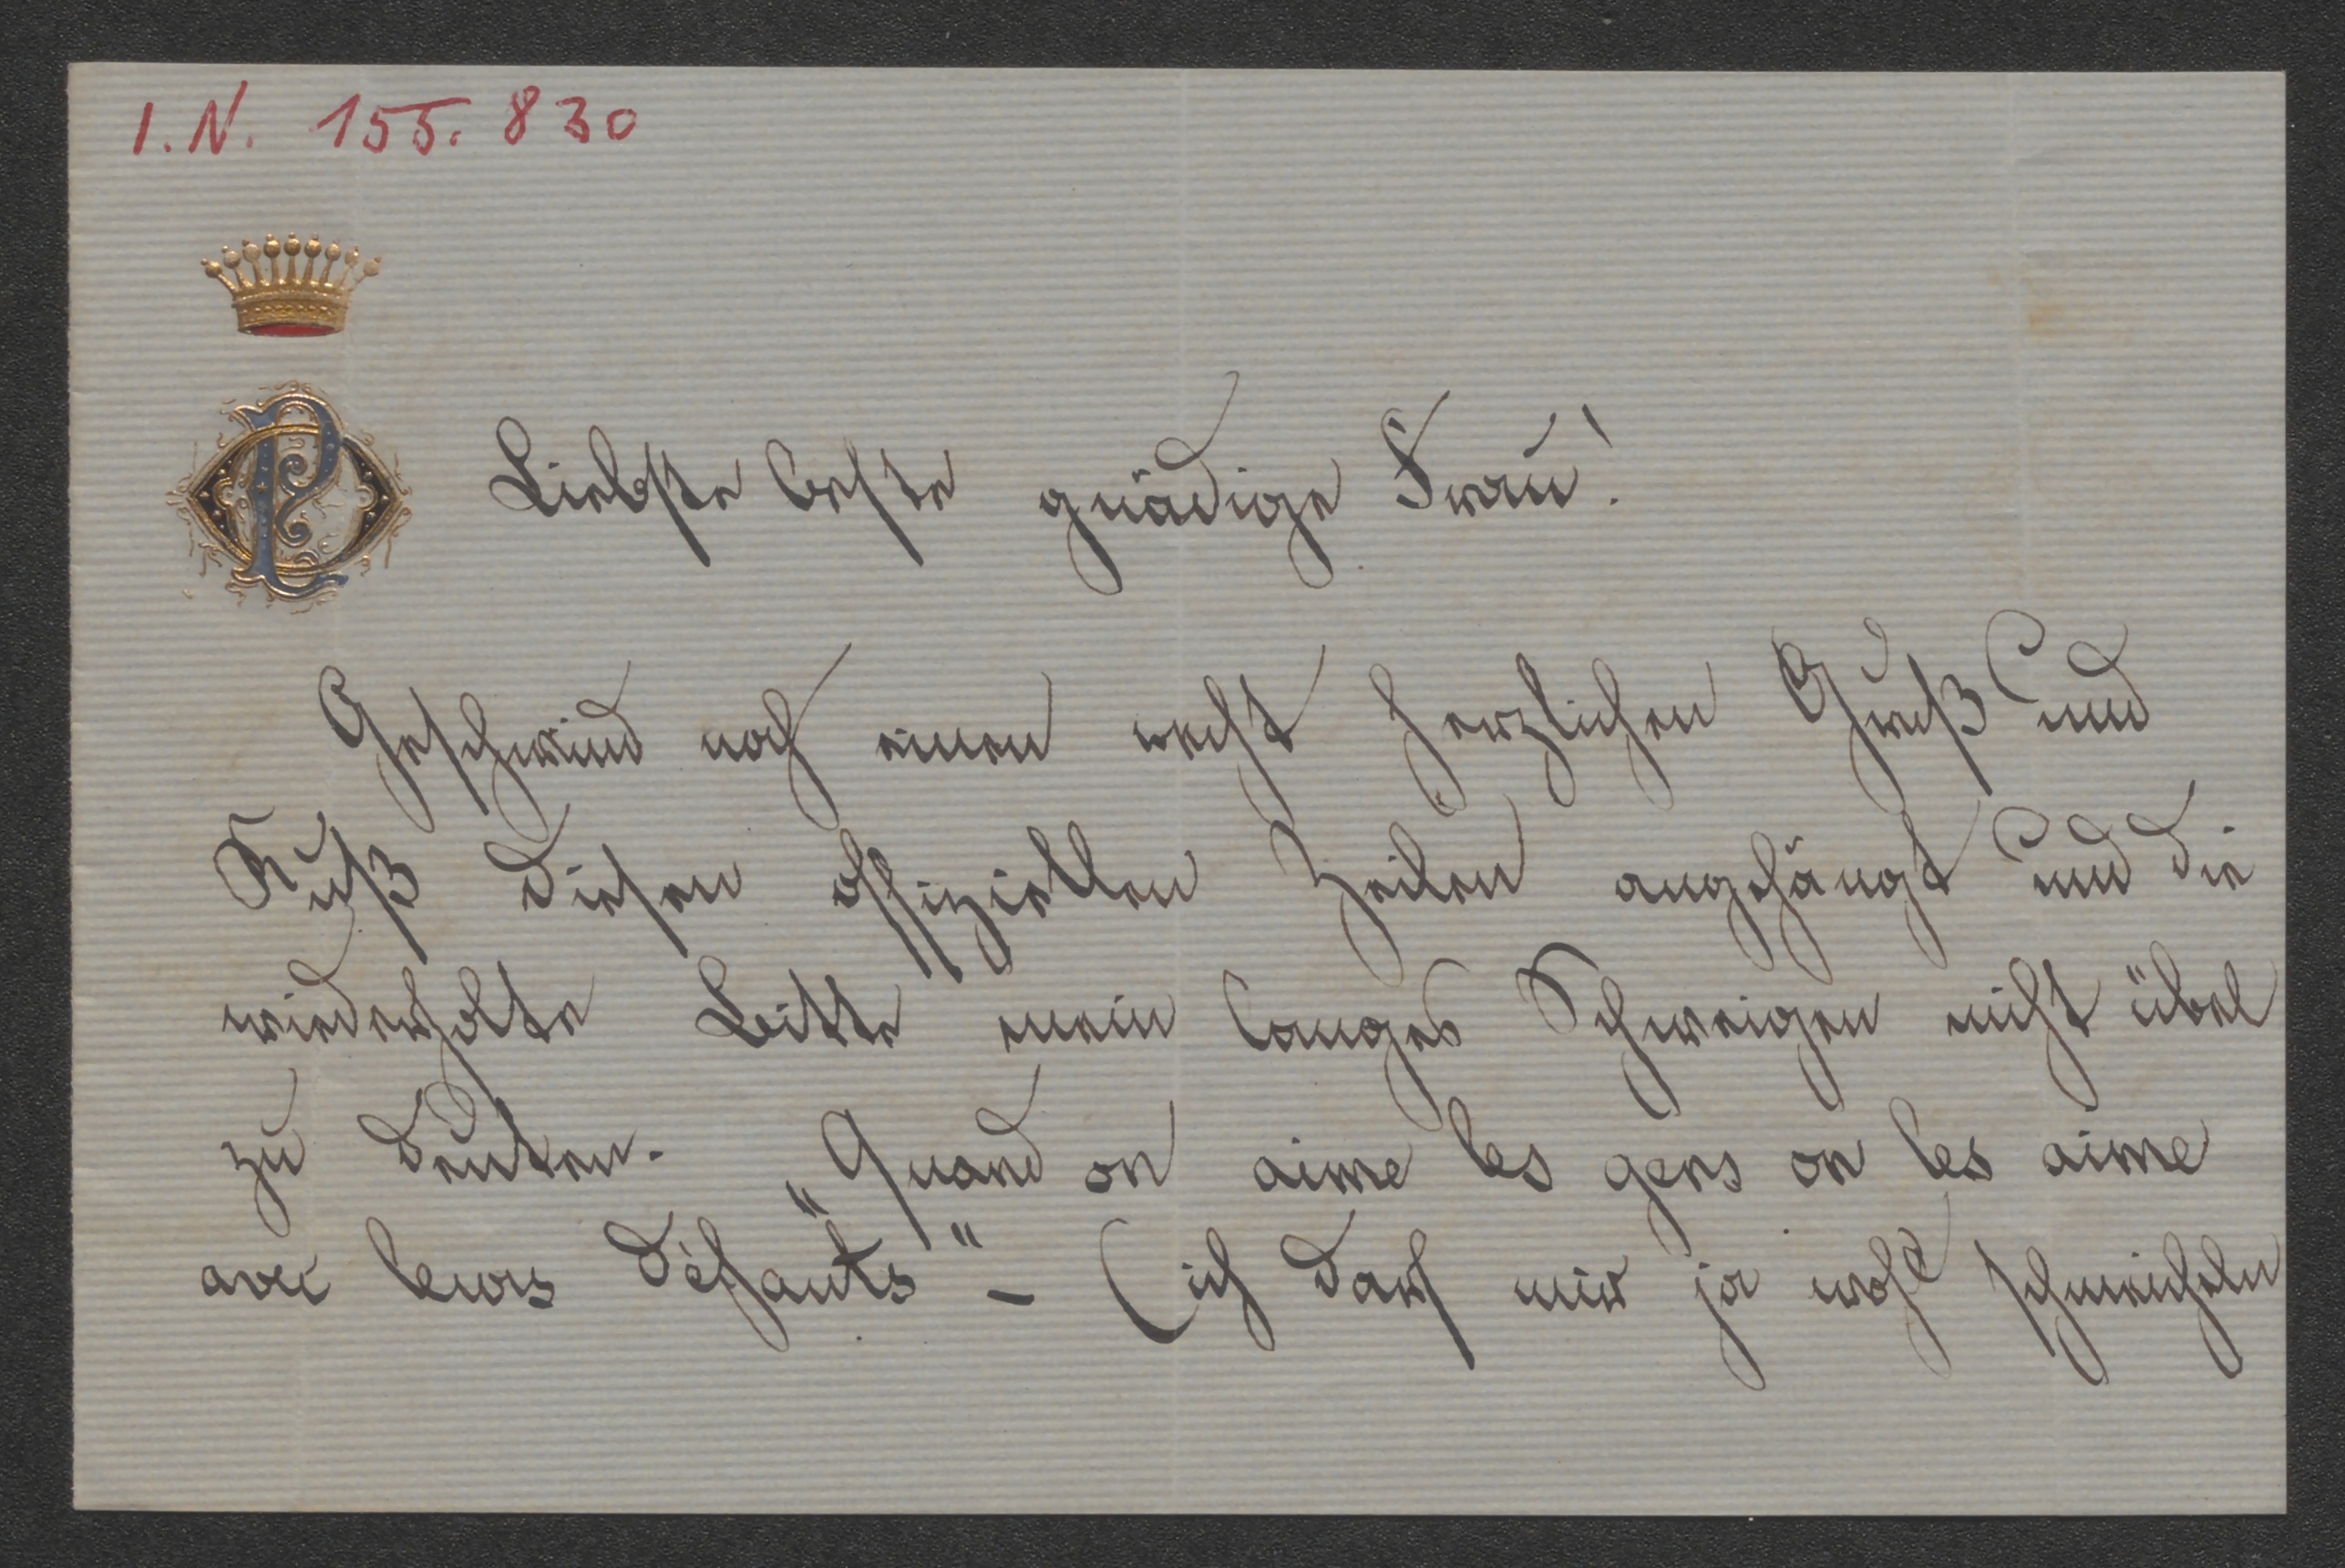 I.N. 155.830
Liebste beste gnädige Frau!
Geschwind noch einen recht herzlichen Gruß und
Kuß diesen offiziellen Zeilen angehängt und die
wiederholte Bitte mein langes Schweigen nicht übel
zu deuten. „Quand on aime les gens on les aime
avec leurs défauts" – (ich darf mir ja wohl schmeicheln